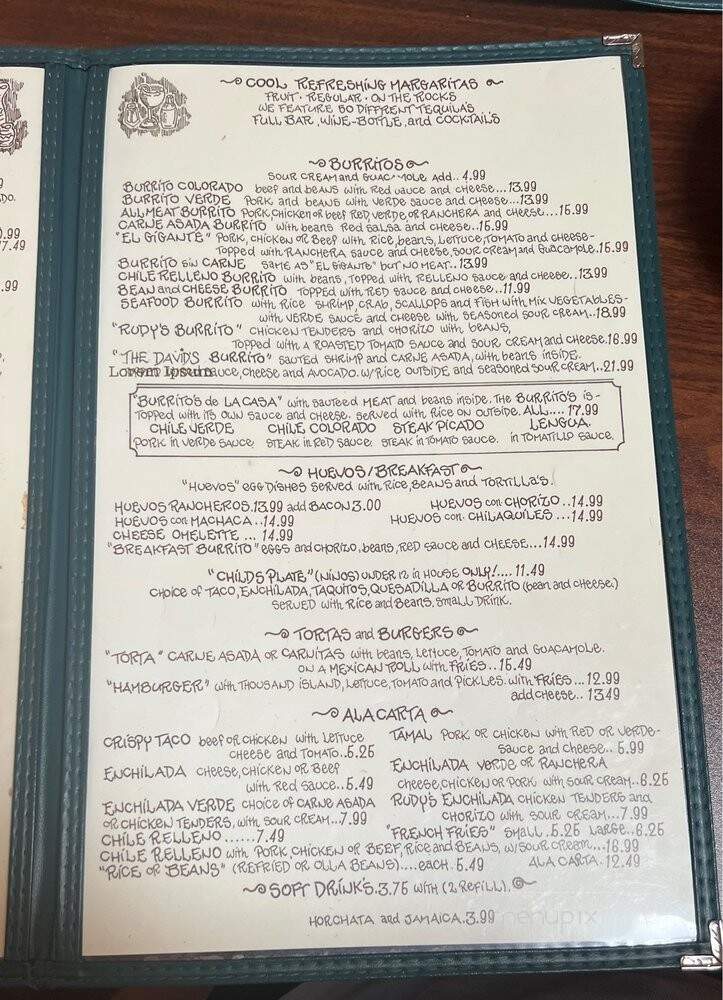 COOL REFRESHING MARGARITAS
FRUIT · REGULAR · ON THE ROCKS
WE FEATURE 50 DIFFRENT TEQUILA'S
FULL BAR, WINE-BOTTLE, and COCKTAILS
BURRITOS
SOUR CREAM and GUACAMOLE ADD.. 4.99
BURRITO COLORADO beef and beans with Red sauce and cheese...13.99
BURRITO VERDE Pork and beans with verde sauce and cheese...13.99
ALL MEAT BURRITO PORK, CHICKEN OR BEEF RED, VERDE, OR RANCHERA and cheese....15.99
CARNE ASADA BURRITO with beans Red salsa and cheese..15.99
"EL GIGANTE" PORK, CHICKEN OR BEEF with Rice, beans, Lettuce, Tomato and cheese-
Topped with RANCHERA sauce and cheese, SOUR CREAM and GUACAMOLE.15.99
BURRITO SIN CARNE SAME AS "EL GIGANTE" BUT NO MEAT..13.99
CHILE RELLENO BURRITO with beans, TOPPED with RELLENO sauce and cheese..13.99
BEAN and CHEESE BURRITO TOPPED with RED sauce and cheese..11.99
SEAFOOD BURRITO with Rice SHRIMP, CRAB, SCALLOPS and FISH with MIX VEGETABLES-
with VERDE SAUCE and CHEESE with SEASONED SOUR CREAM..18.99
"RUDY'S BURRITO" CHICKEN TENDERS and CHORIZO with beans,
TOPPED with A ROASTED TOMATO SAUCE and SOUR CREAM and CHEESE.16.99
"THE DAVID'S BURRITO" SAUTED SHRIMP and CARNE ASADA, with beans INSIDE.
Lorem Ipsum sauce, cheese and AVOCADO. W/Rice OUTSIDE and SEASONED SOUR CREAM..21.99
"BURRITO'S de LA CASA" with sauteed MEAT and beans inside. THE BURRITO'S IS -
TOPPED with ITS OWN SAUCE and CHEESE. SERVED with RICE ON OUTSIDE. ALL.... 17.99
CHILE VERDE CHILE COLORADO STEAK PICADO LENGUA.
PORK in VERDE SAUCE, STEAK in RED SAUCE. STEAK in TOMATO SAUCE. in TOMATILLO SAUCE.
HUEVOS/BREAKFAST
"HUEVOS" EGG DISHES SERVED with RICE, BEANS and TORTILLA'S.
HUEVOS RANCHEROS.13.99 add BACON 3.00 HUEVOS con CHORIZO..14.99
HUEVOS con MACHACA..14.99 HUEVOS con. CHILAQUILES ...14.99
CHEESE OMELETTE ... 14.99
"BREAKFAST BURRITO" EGGS and CHORIZO, beans, RED sauce and CHEESE...14.99
"CHILDS PLATE" (NINOS) UNDER 12 in HOUSE ONLY!.... 11.49
CHOICE of TACO, ENCHILADA, TAQUITOS, QUESADILLA OR BURRITO (bean and cheese.)
SERVED with Rice and Beans, SMALL DRINK.
TORTAS and BURGERS
"TORTA" CARNE ASADA OR CARNITAS with beans, Lettuce, TOMATO and GUACAMOLE.
ON A MEXICAN ROLL with FRIES..15.49
"HAMBURGER" with THOUSAND ISLAND, Lettuce, TOMATO and PICKLES. with FRIES... 12.99
add cheese.. 13.49
ALA CARTA
CRISPY TACO beef OR CHICKEN with LETTUCE
CHEESE and TOMATO..5.25
ENCHILADA CHEESE, CHICKEN OR BEEF
with Red sauce..5.49
ENCHILADA VERDE CHOICE of CARNE ASADA
OR CHICKEN TENDERS, with SOUR CREAM...7.99
CHILE RELLENO.......7.49
TAMAL PORK OR CHICKEN with RED OR VERDE-
sauce and cheese.. 5.99
ENCHILADA VERDE OR RANCHERA
cheese, CHICKEN OR PORK with SOUR CREAM..6.25
RUDY'S ENCHILADA CHICKEN TENDERS and
CHORIZO with SOUR CREAM...7.99
"FRENCH FRIES" SMALL .5.25 LARGE..6.25
CHILE RELLENO with PORK, CHICKEN OR BEEF, Rice and BEANS, W/SOUR CREAM....16.99
"RICE OR BEANS" (REFRIED OR OLLA BEANS)....each. 5.49 ALA CARTA. 12.49
SOFT DRINK'S.3.75 WITH (2 REFILL).
HORCHATA and JAMAICA.3.99
menupix
9
DO.
0.99
7.49
.99